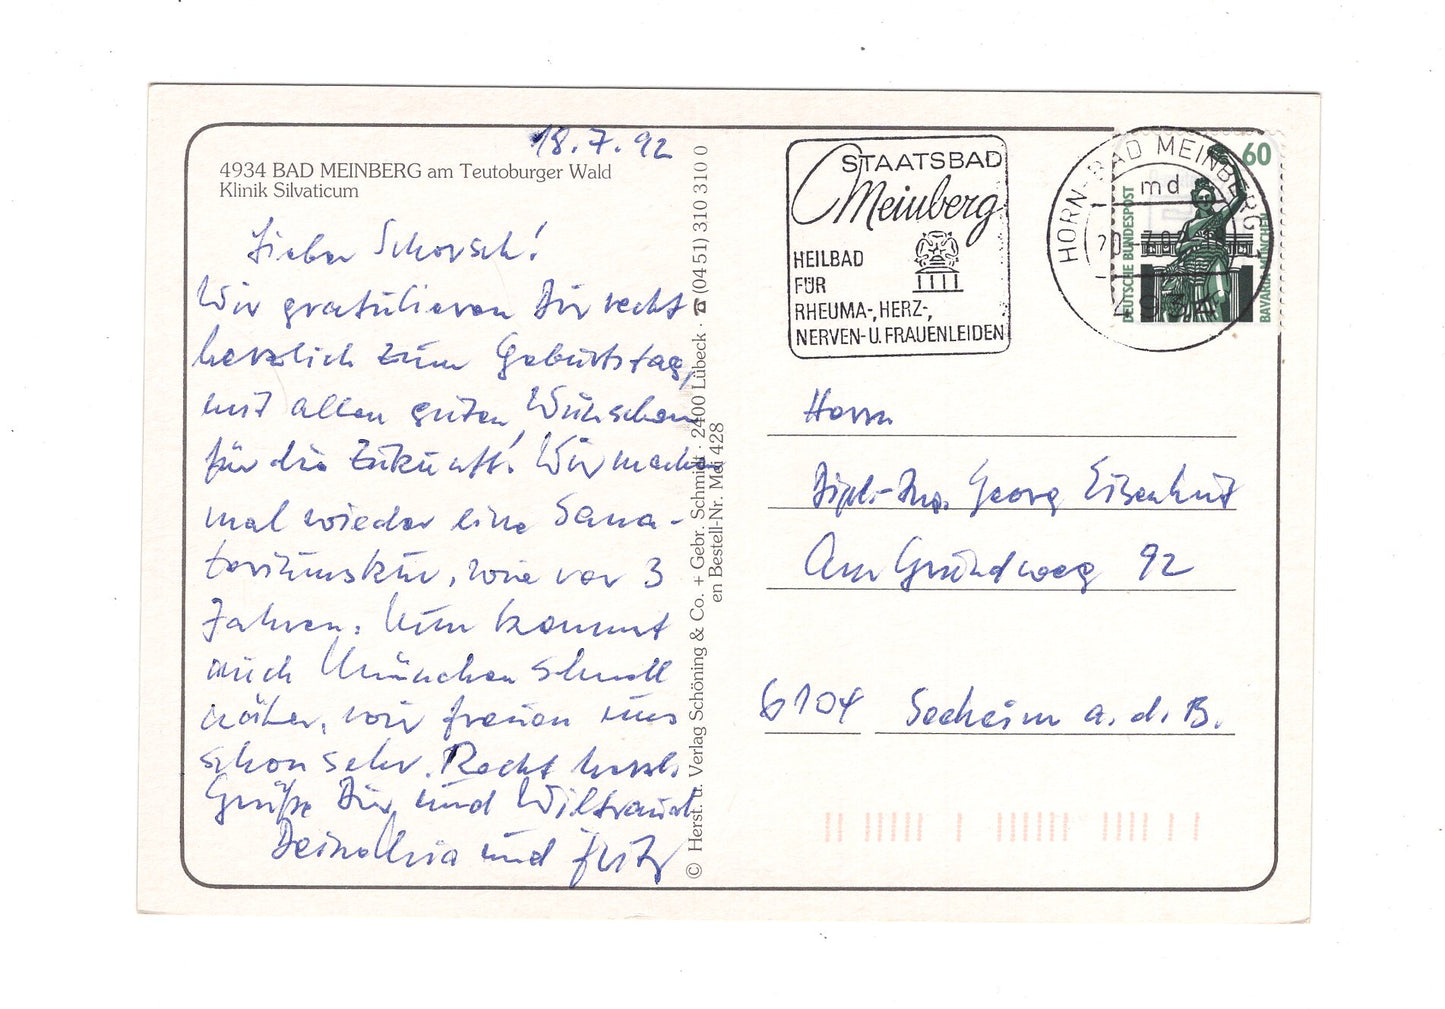 18.7.92
4934 BAD MEINBERG am Teutoburger Wald
Klinik Silvaticum
Lieber Schorsch!
Wir gratulieren Dir recht
herzlich zum Geburtstag,
mit allen guten Wünschen
für die Zukunft! Wir machen
mal wieder eine Sana-
toriumskur, wie vor 3
Jahren. Nun kommt
auch München schnell
näher, wir freuen uns
schon sehr. Recht herzl.
Grüße Dir und Wiltraud
Deine Maria und Fritz
© Herst. u. Verlag Schöning & Co. + Gebr. Schmidt · 2400 Lübeck · ☎ (04 51) 310 310 0
en Bestell-Nr. Mei 428
STAATSBAD
Meinberg
HEILBAD
FÜR
RHEUMA-, HERZ-,
NERVEN- U. FRAUENLEIDEN
HORN-BAD MEINBERG 1
md
4934
60
DEUTSCHE BUNDESPOST
BAVARIA MÜNCHEN
Herrn
Dipl.-Ing. Georg Eisenhut
Am Grundweg 92
6104 Seeheim a. d. B.